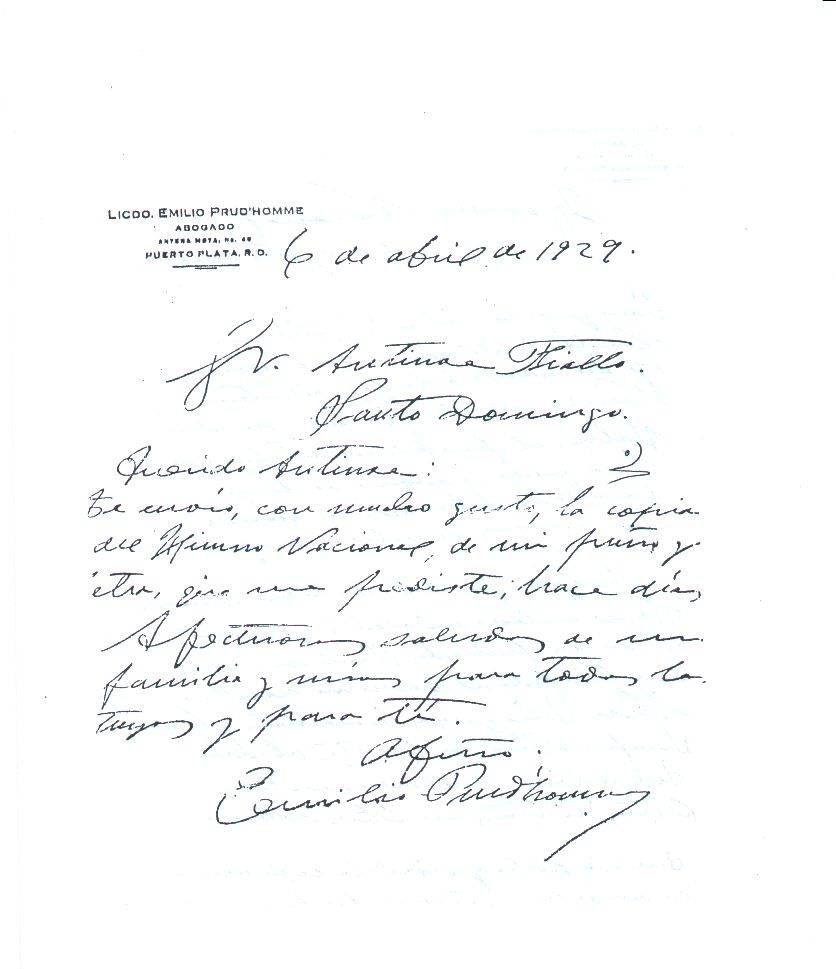 LICDO. EMILIO PRUD'HOMME
ABOGADO
ANTERA MOTA, No. 48
PUERTO PLATA, R. D.
6 de abril de 1929.
Sr. Antinoe Fiallo.
Santo Domingo.
Querido Antinoe:
Te envío, con mucho gusto, la copia
del Himno Nacional, de mi puño y
etra, que me pediste, hace días
Afectuosos saludos de mi
familia y míos para todos los
tuyos y para ti.
Afmo.
Emilio Prud'homme